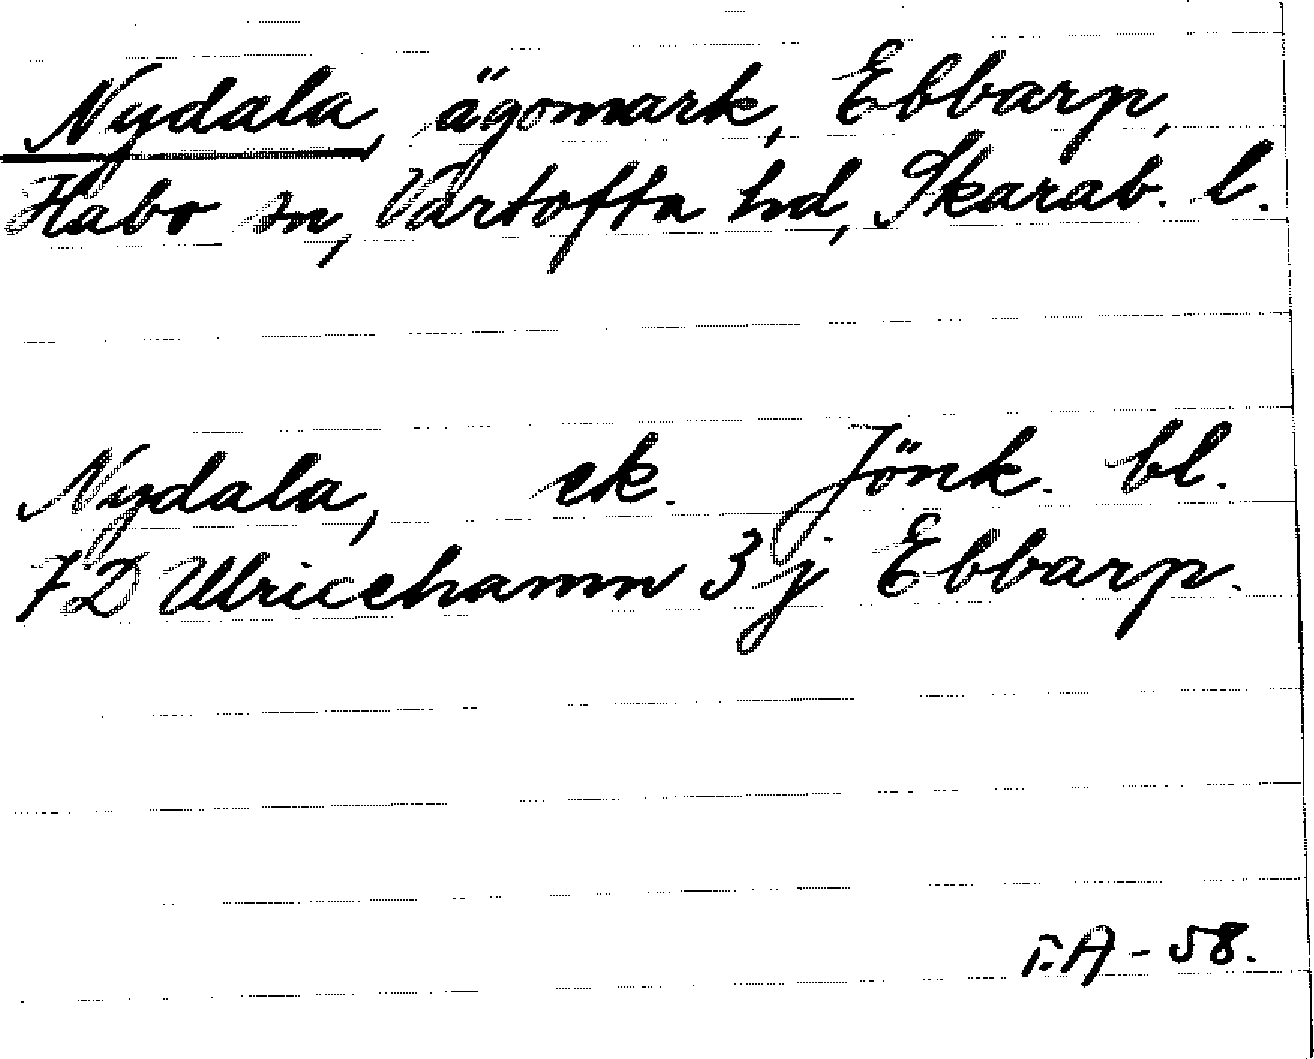 Nydala, ägomark, Ebbarp,
Habo sn, Vartofta hd, Skarab. l.
Nydala, ek. Jönk. bl.
7D Ulricehamn 3 j Ebbarp.
F.A - 58.